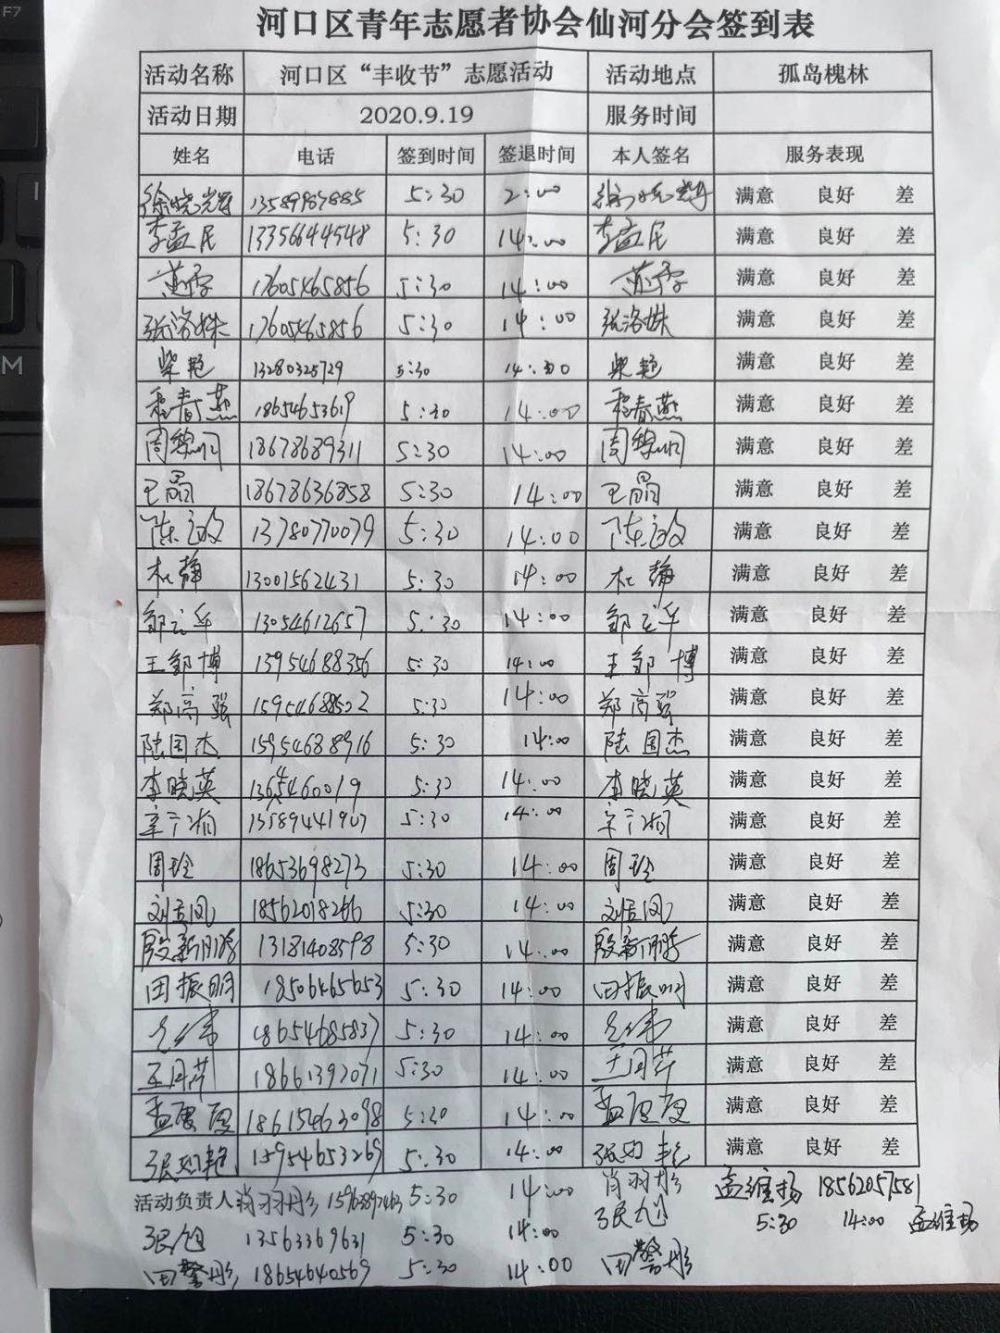 河口区青年志愿者协会仙河分会签到表
活动名称 河口区“丰收节”志愿活动 活动地点 孤岛槐林
活动日期 2020.9.19 服务时间
姓名 电话 签到时间 签退时间 本人签名 服务表现
13589987885 5:30 2:00 满意 良好 差
李孟民 13356644548 5:30 14:00 李孟民 满意 良好 差
17605465856 5:30 14:00 满意 良好 差
张洛姝 17605465856 5:30 14:00 张洛姝 满意 良好 差
柴艳 13280325729 5:30 14:00 柴艳 满意 良好 差
程春燕 18654653619 5:30 14:00 程春燕 满意 良好 差
18678689311 5:30 14:00 满意 良好 差
王晶 18678636858 5:30 14:00 王晶 满意 良好 差
13780770079 5:30 14:00 满意 良好 差
杜静 13001562431 5:30 14:00 杜静 满意 良好 差
邹立华 13054612657 5:30 14:00 邹立华 满意 良好 差
王邹博 13954688356 5:30 14:00 王邹博 满意 良好 差
郑高强 15954688502 5:30 14:00 郑高强 满意 良好 差
陆国杰 15954688916 5:30 14:00 陆国杰 满意 良好 差
李晓英 5:30 14:00 李晓英 满意 良好 差
5:30 14:00 满意 良好 差
周玲 18653698273 5:30 14:00 周玲 满意 良好 差
刘孟凤 18562018266 5:30 14:00 刘孟凤 满意 良好 差
殷新鹏 13181408598 5:30 14:00 殷新鹏 满意 良好 差
田振明 18506465653 5:30 14:00 田振明 满意 良好 差
18654685837 5:30 14:00 满意 良好 差
王月芹 18661392071 5:30 14:00 王月芹 满意 良好 差
18615463098 5:30 14:00 满意 良好 差
张如艳 15954653269 5:30 14:00 张如艳 满意 良好 差
活动负责人 肖羽彤 5:30 14:00 肖羽彤 孟维扬 18562057581
5:30 14:00 孟维扬
张旭 13563369631 5:30 14:00 张旭
田馨彤 18654640569 5:30 14:00 田馨彤